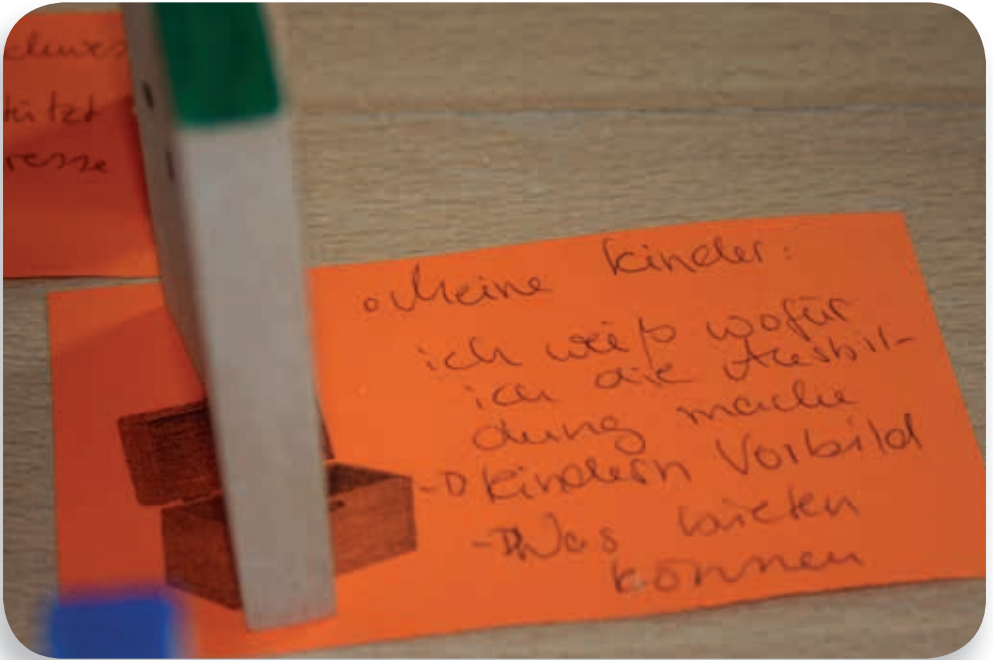 resse
• Meine Kinder:
ich weiß wofür
ich die Ausbil-
dung mache
-> Kindern Vorbild
-> Was bieten
können